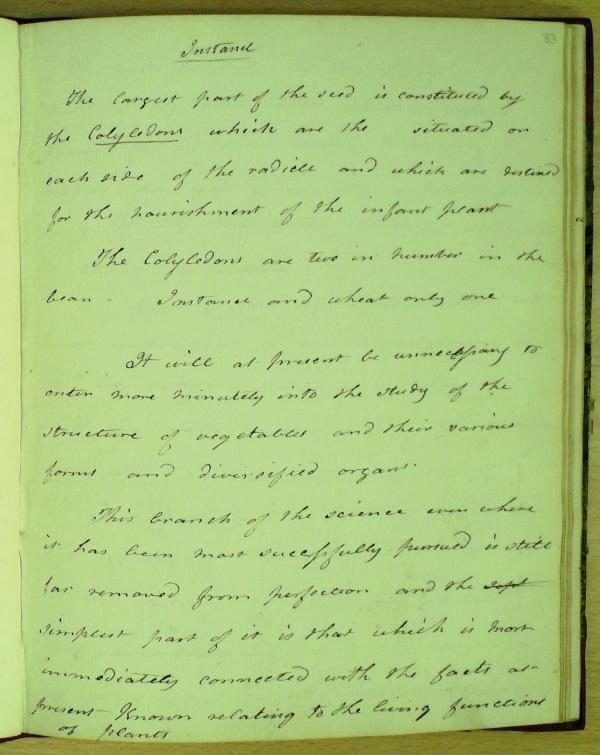 33
Instance
The largest part of the seed is constituted by
the Colyledons which are the situated on
each side of the radicle and which are destined
for the nourishment of the infant plant
The Colyledons are two in number in the
bean - Instance and wheat only one
It will at present be unnecessary to
enter more minutely into the study of the
structure of vegetables and their various
forms and diversified organs.
This branch of the science even where
it has been most successfully pursued is still
far removed from perfection and the
simplest part of it is that which is most
immediately connected with the facts at
present known relating to the living functions
of plants